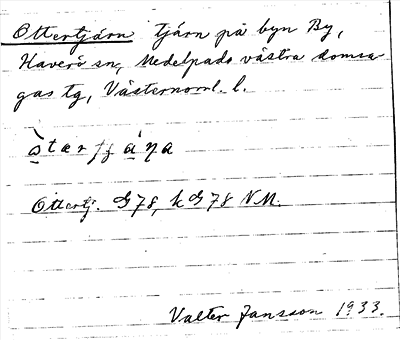 Ottertjärn tjärn på byn By,
Haverö sn, Medelpads västra domsa
gas tg, Västernorrl. l.
Ottertj. G78, k G78 NM.
Valter Jansson 1933.